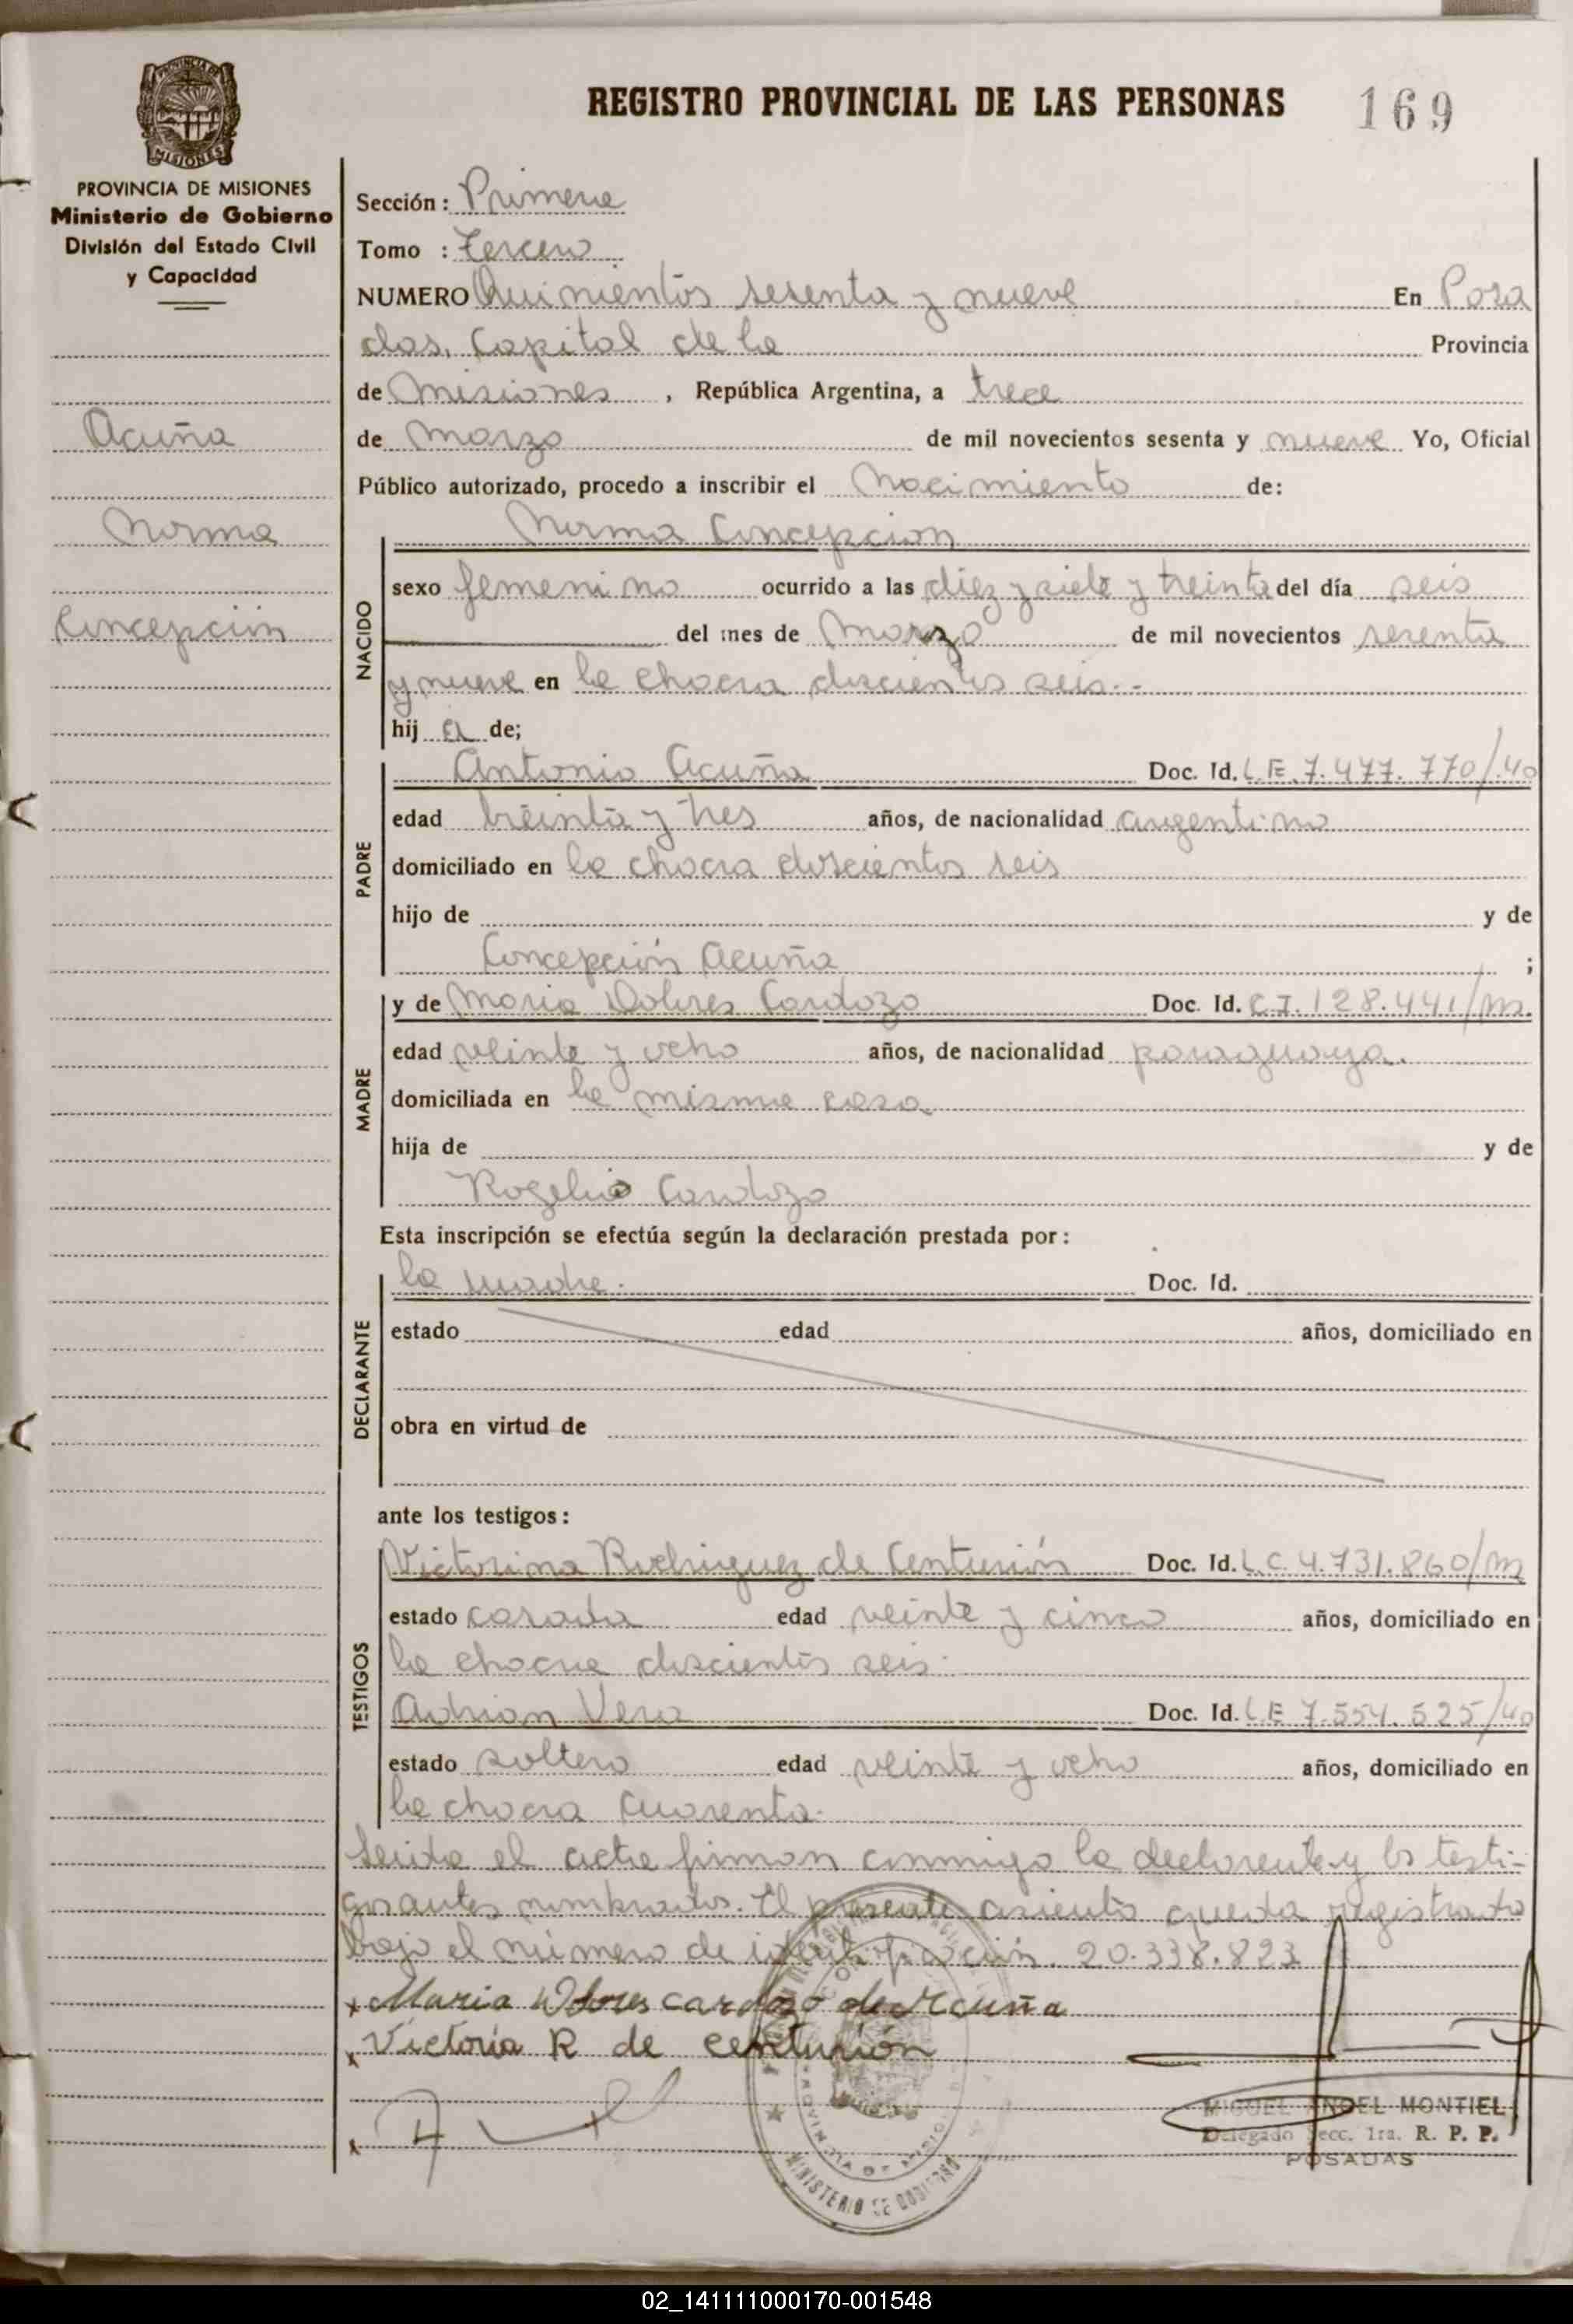 REGISTRO PROVINCIAL DE LAS PERSONAS 169
PROVINCIA DE MISIONES
MISIONES
PROVINCIA DE MISIONES
Ministerio de Gobierno
División del Estado Civil
y Capacidad
Acuña
Norma
Concepción
Sección: Primera
Tomo : Tercero
NUMERO Quinientos sesenta y nueve En Posa
das, Capital de la Provincia
de Misiones , República Argentina, a trece
de Marzo de mil novecientos sesenta y nueve Yo, Oficial
Público autorizado, procedo a inscribir el Nacimiento de:
NACIDO
Norma Concepcion
sexo femenino ocurrido a las diez y siete y treinta del día seis
del mes de Marzo de mil novecientos sesenta
y nueve en la chacra doscientos seis.-
hij a de;
PADRE
Antonio Acuña Doc. Id. L.E. 7.477.770/.40
edad treinta y tres años, de nacionalidad argentino
domiciliado en la chacra doscientos seis
hijo de y de
Concepción Acuña ;
MADRE
y de Maria Dolores Cardozo Doc. Id. C.I. 128.441/m.
edad veinte y ocho años, de nacionalidad paraguaya.
domiciliada en la misma casa
hija de y de
Rogelio Cardozo
Esta inscripción se efectúa según la declaración prestada por:
DECLARANTE
la madre. Doc. Id.
estado edad años, domiciliado en
obra en virtud de
ante los testigos:
TESTIGOS
Victorina Rodriguez de Centurión Doc. Id. L.C 4.731.860/m
estado casada edad veinte y cinco años, domiciliado en
la chacra doscientos seis.
Adrian Vera Doc. Id. L.E 7.554.525/40
estado soltero edad veinte y ocho años, domiciliado en
la chacra cuarenta.
Leida el acta firman conmigo la declarante y los testi-
gosantes nombrados. El presente asiento queda registrado
bajo el número de identificación. 20.338.823
x Maria Dolores cardozo de Acuña
x Victoria R de centurión
x
MINISTERIO DE GOBIERNO
MIGUEL ANGEL MONTIEL
Delegado Secc. 1ra. R. P. P.
POSADAS
02_141111000170-001548